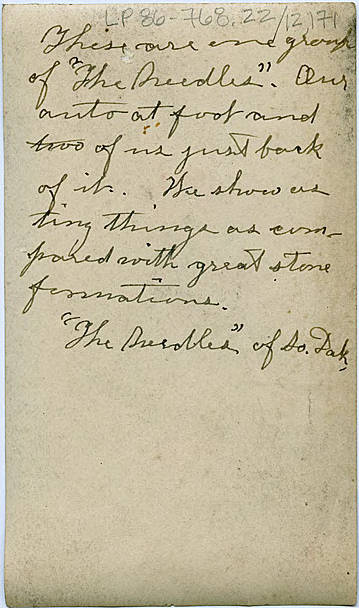 LP 86-768.22/12)71
These are one group
of "The Needles". Our
auto at foot and
two of us just back
of it. We show as
tiny things as com-
pared with great stone
formations.
"The Needles" of So. Dak.